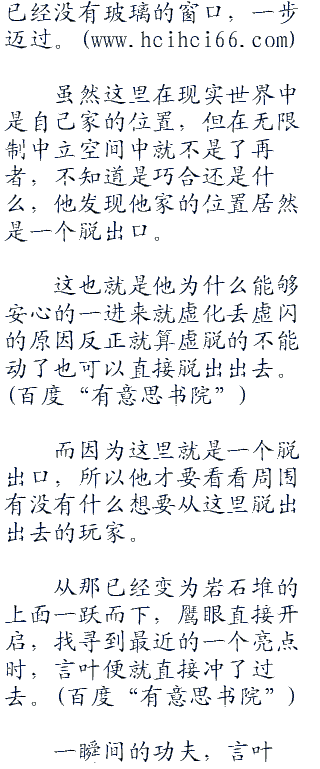 已经没有玻璃的窗口，一步
迈过。(www.hcihci66.com)
虽然这里在现实世界中
是自己家的位置，但在无限
制中立空间中就不是了再
者，不知道是巧合还是什
么，他发现他家的位置居然
是一个脱出口。
这也就是他为什么能够
安心的一进来就虚化丢虚闪
的原因反正就算虚脱的不能
动了也可以直接脱出出去。
(百度“有意思书院”)
而因为这里就是一个脱
出口，所以他才要看看周围
有没有什么想要从这里脱出
出去的玩家。
从那已经变为岩石堆的
上面一跃而下，鹰眼直接开
启，找寻到最近的一个亮点
时，言叶便就直接冲了过
去。(百度“有意思书院”)
一瞬间的功夫，言叶